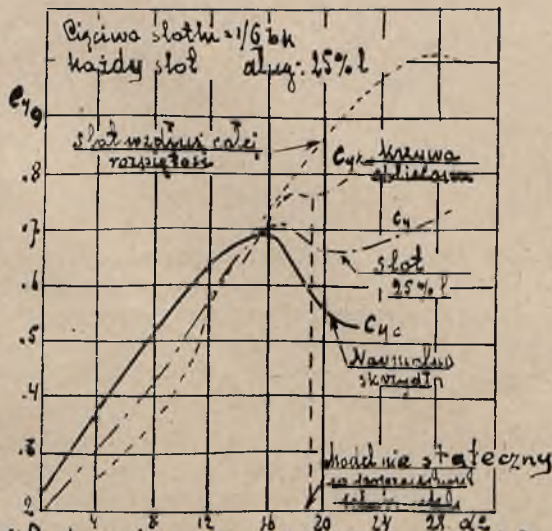 Cięciwa slotki = 1/6 tsk
każdy slot dług. 25% l
Cy
.9
slot wzdłuż całej
rozpiętości
Cyk krzywa
.8
Cy
.7
slot
25% l
.6
Cyc
.5
Normalne
skrzydło
.4
.3
Model nie stateczny
.2
4 8 12 16 20 24 28 α°